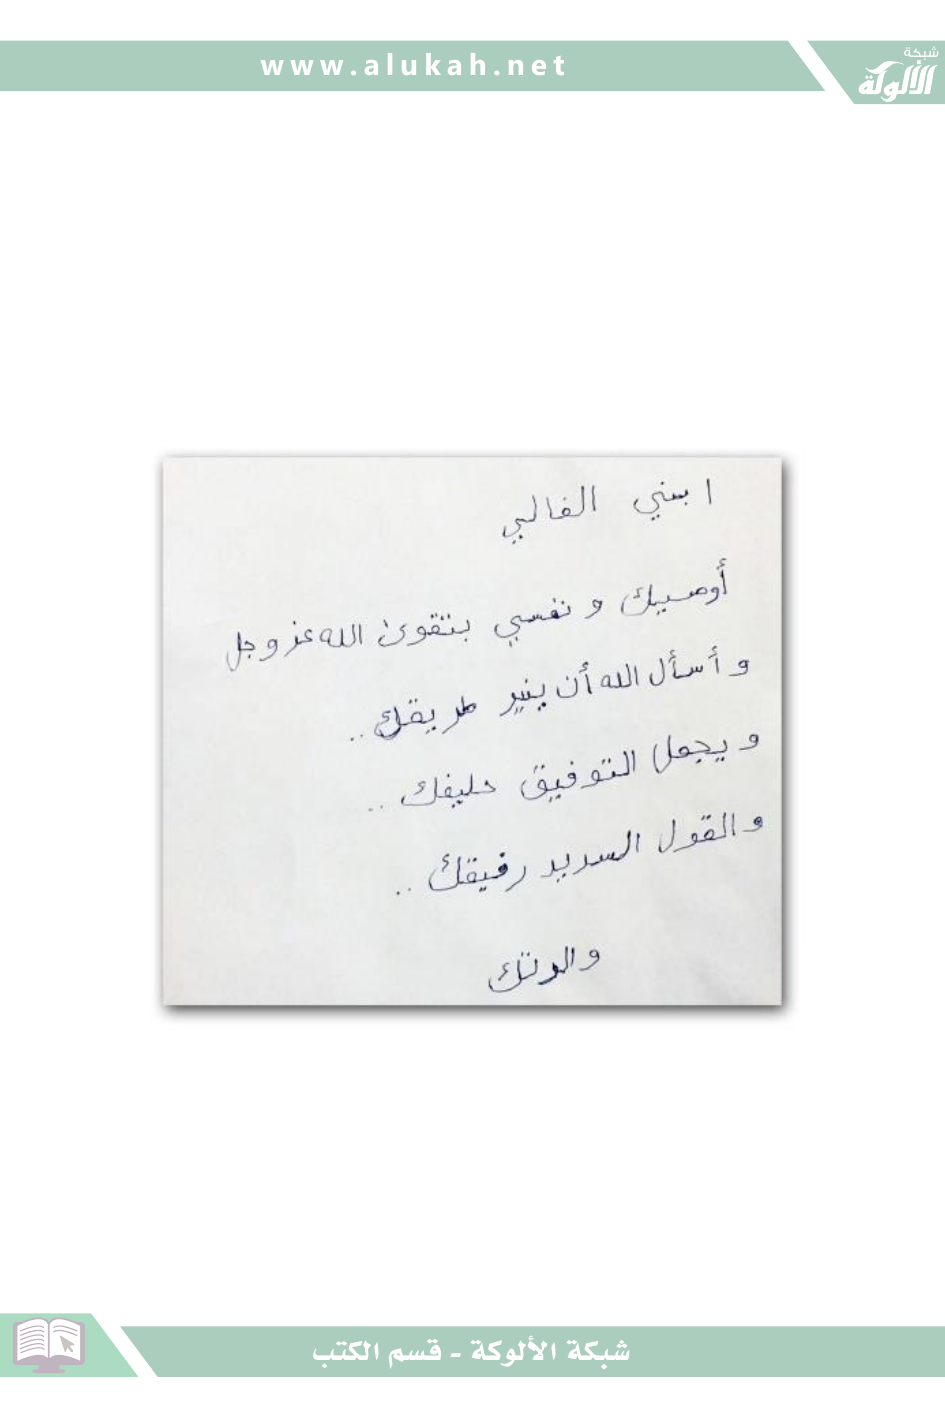 www.alukah.net
شبكة
الألوكة
ابني الغالي
أوصيك ونفسي بتقوى الله عز وجل
وأسأل الله أن ينير طريقك ..
ويجعل التوفيق حليفك ..
والقول السديد رفيقك ..
والدتك
شبكة الألوكة - قسم الكتب